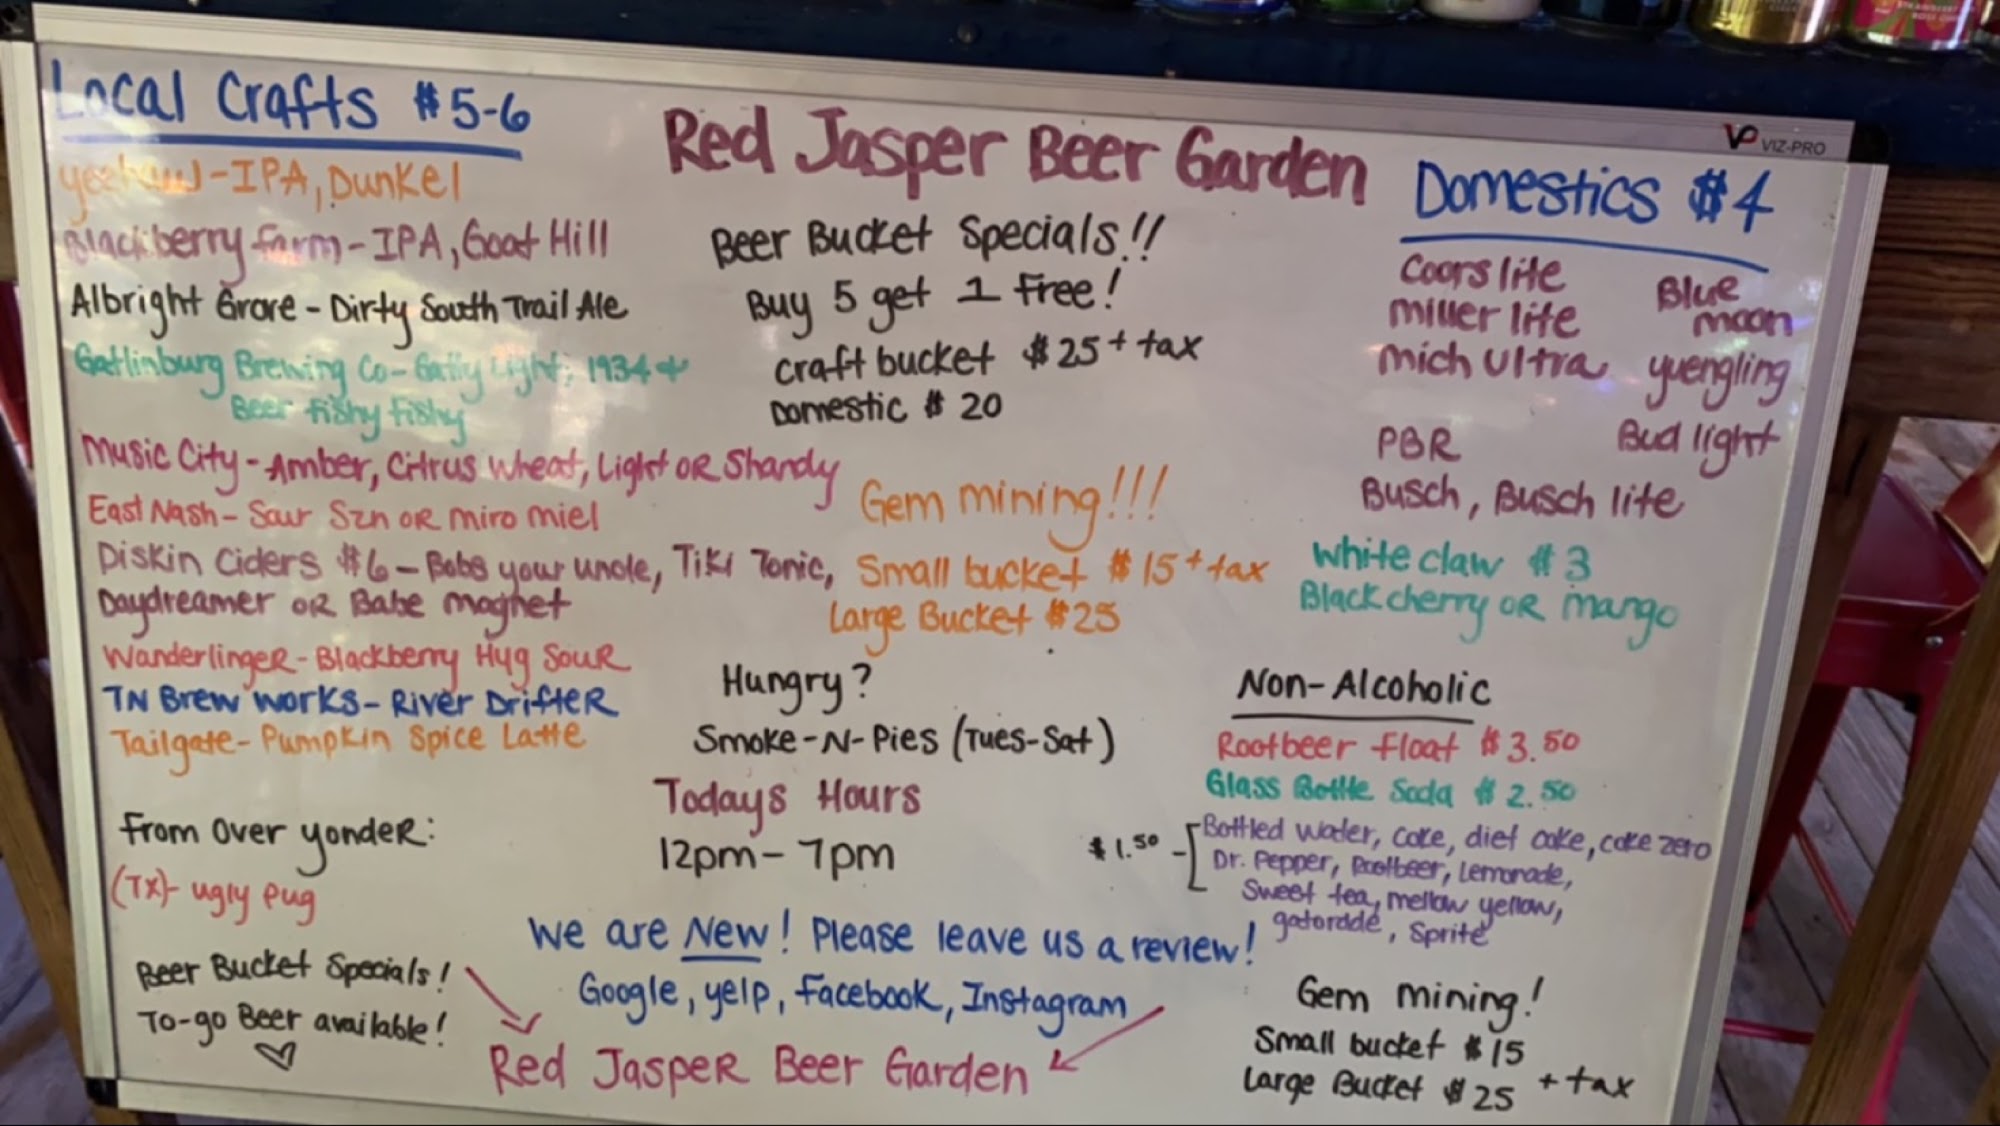 Local Crafts $5-6
yeehaw-IPA, Dunkel
Blackberry farm-IPA, Goat Hill
Albright Grove-Dirty South Trail Ale
Gatlinburg Brewing Co-Gatty Light, 1934 &
Beer fishy fishy
Music City-Amber, Citrus wheat, Light OR Shandy
East Nash-Sour Szn OR miro miel
Diskin Ciders $6-Bobs your uncle, Tiki Tonic,
Daydreamer OR Babe magnet
WanderlingeR-Blackberry Hyg SouR
TN Brew works-River DrifteR
Tailgate-Pumpkin Spice Latte
From over yondeR:
(TX)-ugly pug
Beer Bucket Specials!
To-go Beer available!
Red Jasper Beer Garden
Beer Bucket Specials!!
Buy 5 get 1 free!
craft bucket $25+tax
Domestic $20
Gem mining!!!
Small bucket $15+tax
Large Bucket $25
Hungry?
Smoke-N-Pies (Tues-Sat)
Todays Hours
12pm-7pm
We are New! Please leave us a review!
Google, yelp, Facebook, Instagram
Red JaspeR Beer Garden
VP VIZ-PRO
Domestics $4
Coors lite
miller lite
mich ultra
Blue
moon
yuengling
PBR
Bud light
Busch, Busch lite
White claw $3
Black cherry OR mango
Non-Alcoholic
Rootbeer float $3.50
Glass Bottle Soda $2.50
$1.50
Bottled water, coke, diet coke, coke zero
Dr. Pepper, Rootbeer, Lemonade,
Sweet tea, mellow yellow,
gatorade, Sprite
Gem mining!
Small bucket $15
Large Bucket $25
+tax